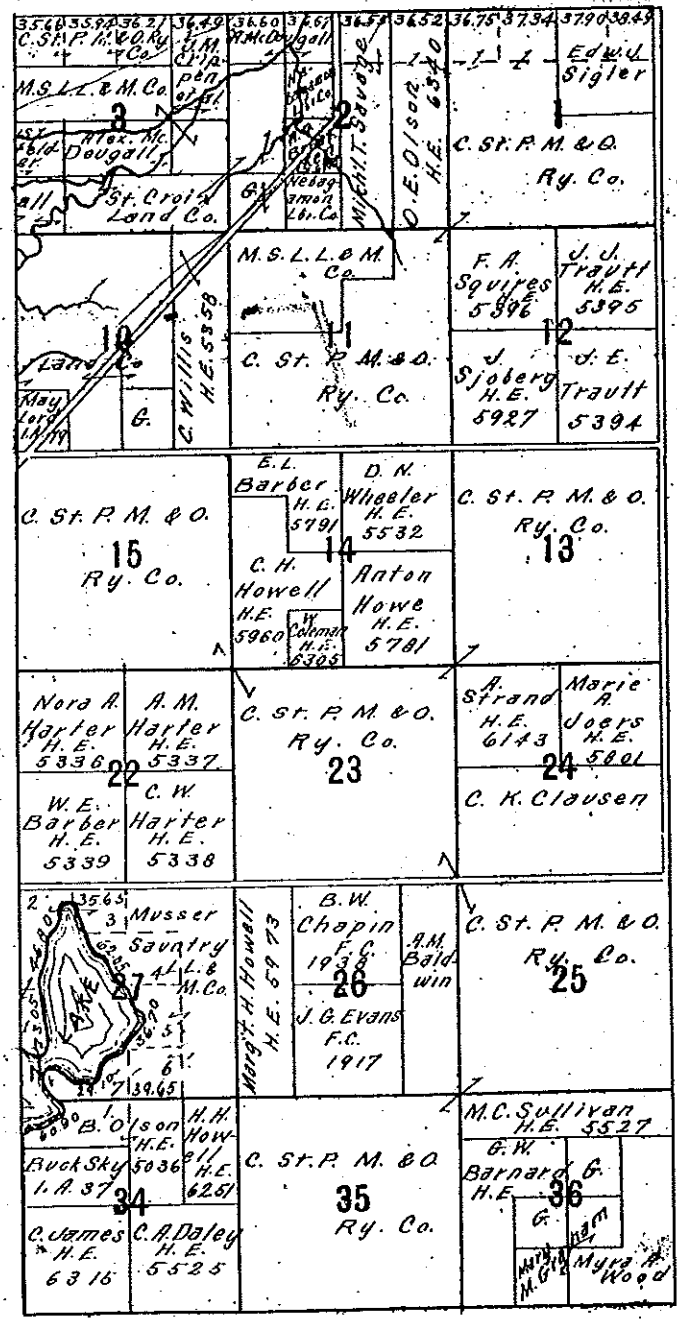 35.66 35.94 36.21 36.49 36.60 36.52 36.75 37.34 37.90 38.49
C. St. P. M. & O. Ry
Co.
M.S.L.L. & M. Co.
3
Alex. Mc.
Dougall
St. Croix
Land Co.
2
Nebag
amon
Lbr. Co.
G.
Mich'l. T. Savage
O. E. Olson
H.E. 6340
Edw. J.
Sigler
1
C. St. P. M. & O.
Ry. Co.
10
Land Co
May
Lord
G.
C. Willis
H.E. 5358
M.S.L.L. & M.
Co.
11
C. St. P. M. & O.
Ry. Co.
F. A.
Squires
H.E.
5396
J. J.
Trautt
H.E.
5395
12
J.
Sjoberg
H.E.
5927
J. E.
Trautt
5394
C. St. P. M. & O.
15
Ry. Co.
E. L.
Barber
H.E.
5791
D. N.
Wheeler
H.E.
5532
14
C. H.
Howell
H.E.
5960
W.
Coleman
H.E.
6305
Anton
Howe
H.E.
5781
C. St. P. M. & O.
Ry. Co.
13
Nora A.
Harter
H.E.
5336
A. M.
Harter
H.E.
5337
22
W. E.
Barber
H.E.
5339
C. W.
Harter
H.E.
5338
C. St. P. M. & O.
Ry. Co.
23
A.
Strand
H.E.
6143
Marie
A.
Joers
H.E.
5801
24
C. K. Clausen
2
35.65
3
Musser
Sauntry
L. &
M. Co.
4
27
LAKE
73.05
36.70
5
6
7
39.65
60.90
Marg't. H. Howell
H.E. 5973
B. W.
Chapin
F.C.
1938
26
J. G. Evans
F.C.
1917
A.M.
Bald-
win
C. St. P. M. & O.
Ry. Co.
25
1
B. Olson
H.E.
5036
H. H.
How-
ell
H.E.
6251
Buck Sky
I. A. 37
34
C. James
H.E.
6315
C. A. Daley
H.E.
5525
C. St. P. M. & O.
35
Ry. Co.
M. C. Sullivan
H.E. 5527
G. W.
Barnard
H.E.
G.
36
G.
Mary
M. Graham
Myra A.
Wood